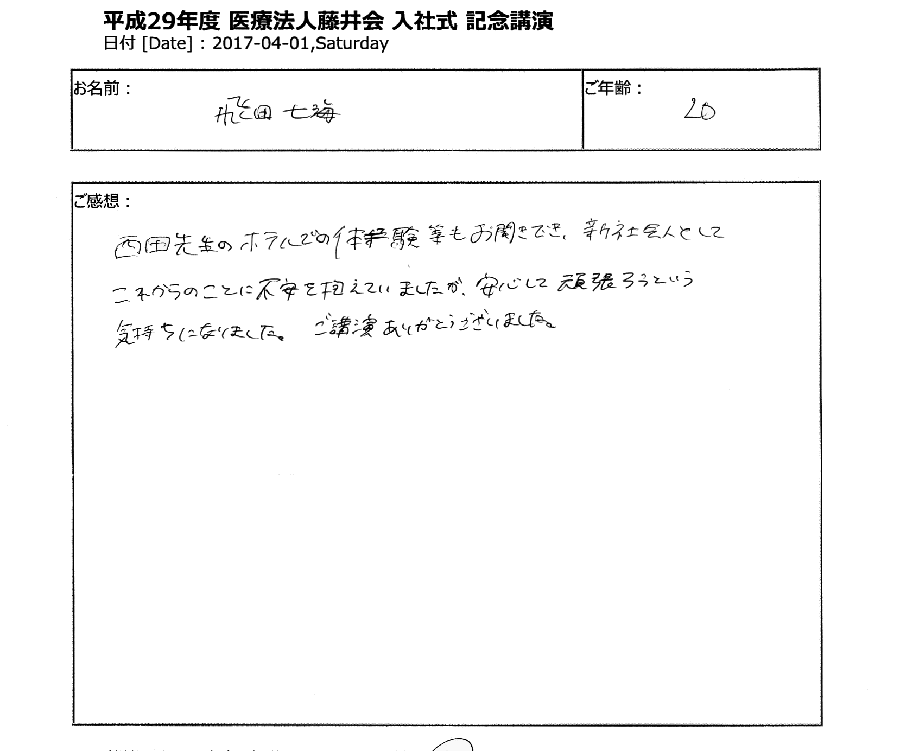 平成29年度 医療法人藤井会 入社式 記念講演
日付 [Date] : 2017-04-01,Saturday
お名前：
飛田 七海
ご年齢：
20
ご感想：
西田先生のホテルでの体験等もお聞きでき、新社会人として
これからのことに不安を抱えていましたが、安心して頑張ろうという
気持ちになりました。 ご講演ありがとうございました。